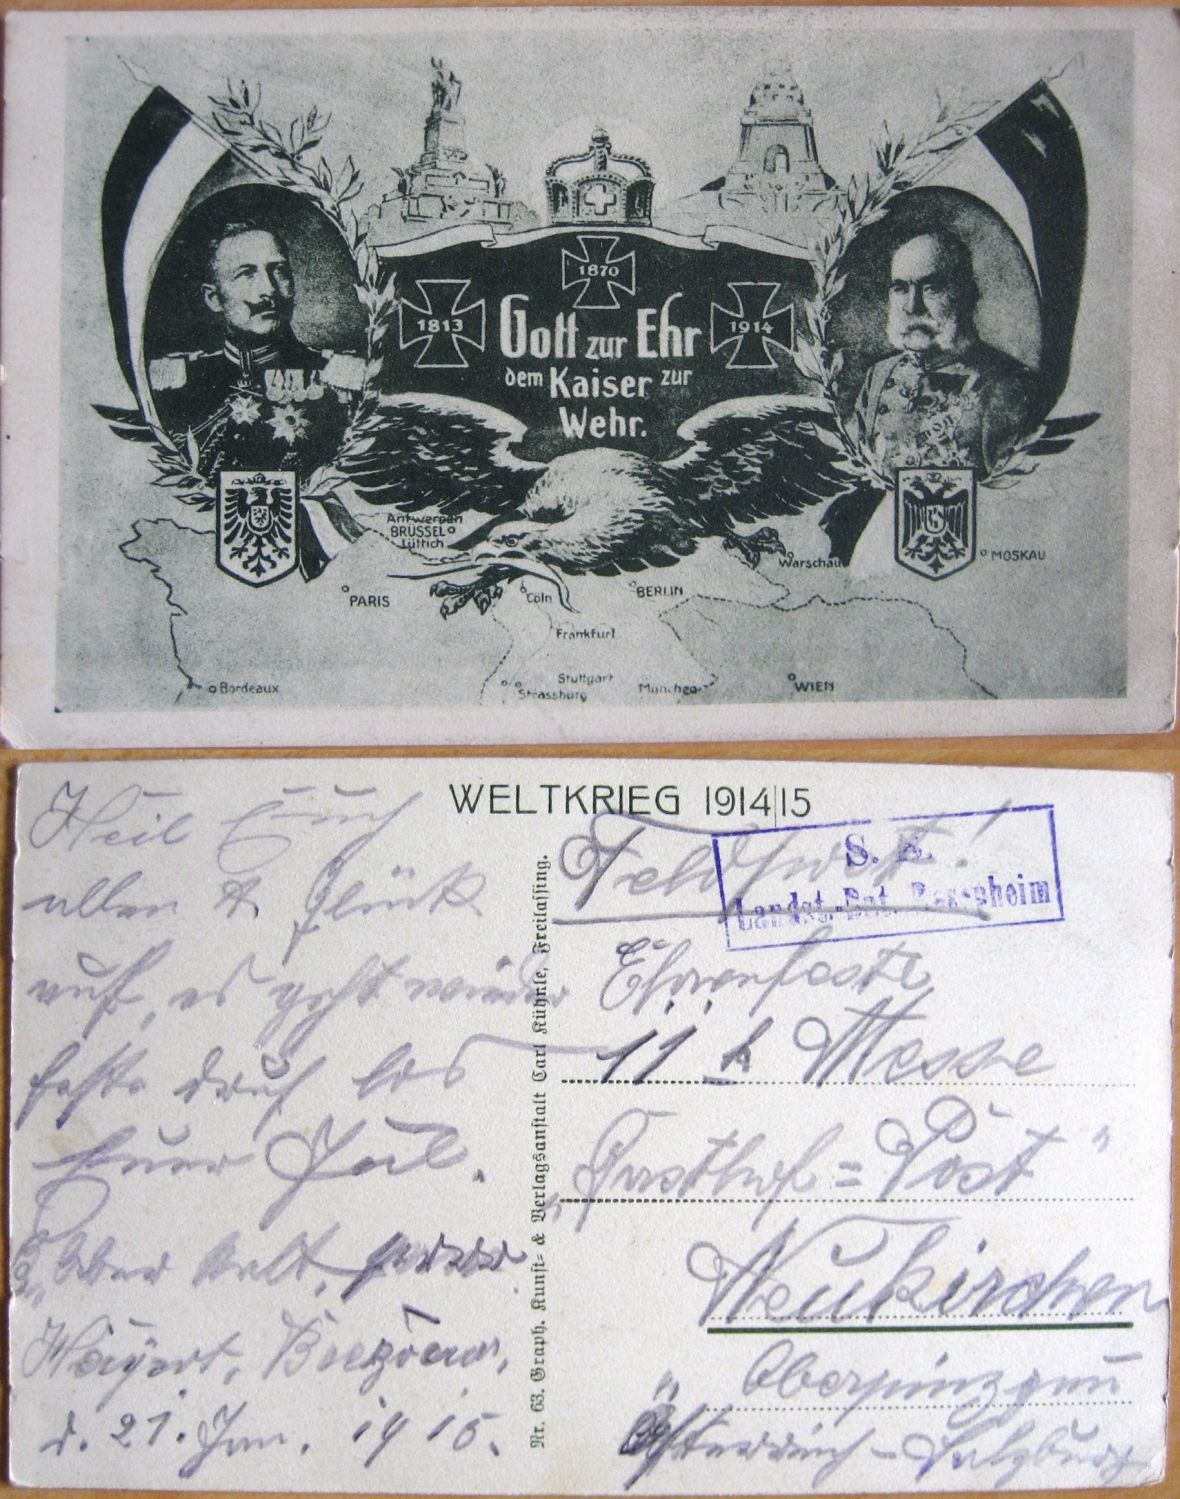 1870
1813
1914
Gott zur Ehr
dem Kaiser zur
Wehr.
Antwerpen
BRÜSSEL
Lüttich
PARIS
Cöln
BERLIN
Warschau
MOSKAU
Frankfurt
Bordeaux
Stuttgart
Strassburg
München
WIEN
WELTKRIEG 1914|15
S. B.
Landst. Bat. Rosenheim
Heil Euch
allen & Glück
auf, es geht wieder
feste drauf los
Euer
Aber kalt,
d. 21. Jan. 1915.
Nr. 63. Graph. Kunst- & Verlagsanstalt Carl Kühnle, Freilassing.
Feldpost!
"Gasthof=Post"
Neukirchen
Oberpinzgau
Österreich - Salzburg